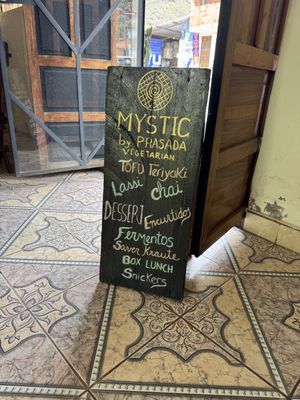 MYSTIC
by PRASADA
VEGETARIAN
TOFU Teriyaki
Lassi chai
DESSERT Encurtidos
Fermentos
Saver Kraute
BOX LUNCH
Snickers